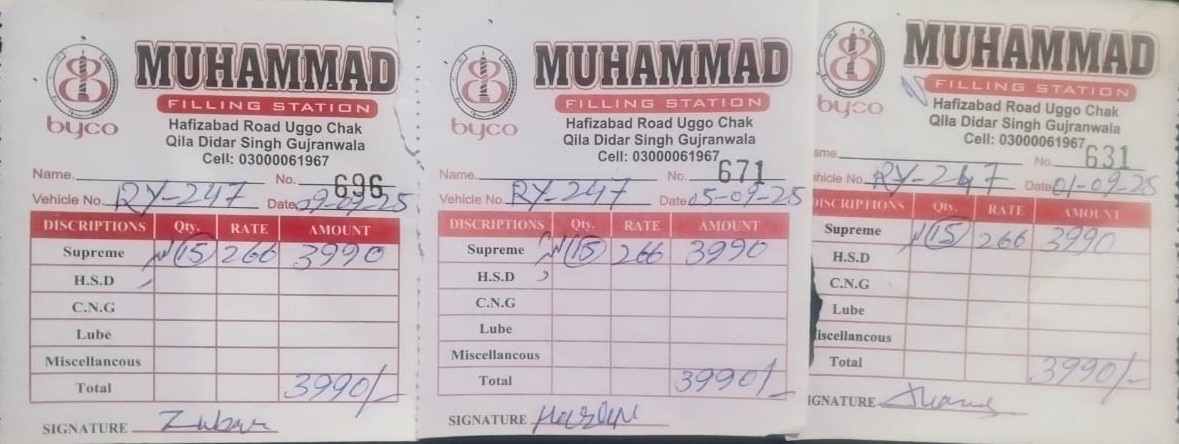 MUHAMMAD
FILLING STATION
byco
Hafizabad Road Uggo Chak
Qila Didar Singh Gujranwala
Cell: 03000061967
Name. No. 696
Vehicle No. RY-247 Date 09-09-25
DISCRIPTIONS Qty. RATE AMOUNT
Supreme 15 266 3990
H.S.D
C.N.G
Lube
Miscellancous
Total 3990/-
SIGNATURE
MUHAMMAD
FILLING STATION
byco
Hafizabad Road Uggo Chak
Qila Didar Singh Gujranwala
Cell: 03000061967
Name. No. 671
Vehicle No. RY-247 Date 05-09-25
DISCRIPTIONS Qty. RATE AMOUNT
Supreme 15 266 3990
H.S.D
C.N.G
Lube
Miscellancous
Total 3990/-
SIGNATURE
MUHAMMAD
FILLING STATION
byco
Hafizabad Road Uggo Chak
Qila Didar Singh Gujranwala
Cell: 03000061967
ame. No. 631
hicle No. RY-247 Date 01-09-25
DISCRIPTIONS Qty. RATE AMOUNT
Supreme 15 266 3990
H.S.D
C.N.G
Lube
iscellancous
Total 3990/-
IGNATURE